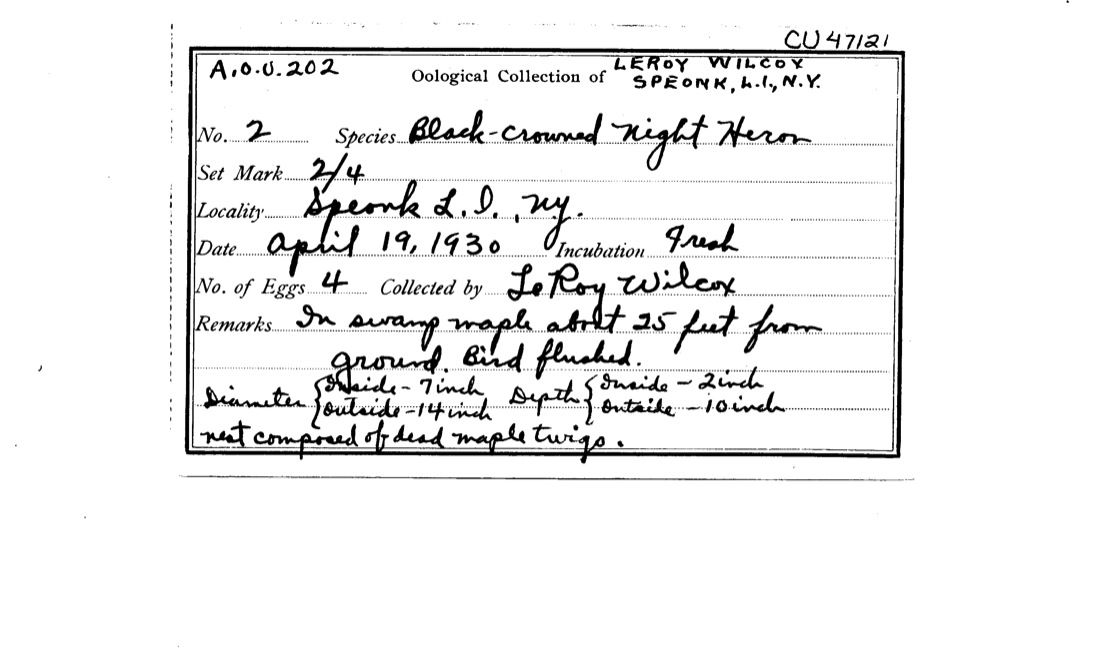 CU 47121
A.O.U. 202 Oological Collection of LEROY WILCOX
SPEONK, L.I., N.Y.
No. 2 Species Black-crowned Night Heron
Set Mark 2/4
Locality Speonk L.I., N.Y.
Date April 19, 1930 Incubation Fresh
No. of Eggs 4 Collected by LeRoy Wilcox
Remarks In swamp maple about 25 feet from
ground. Bird flushed.
Diameter { Inside - 7 inch Depth { Inside - 2 inch
Outside - 14 inch Outside - 10 inch
nest composed of dead maple twigs.